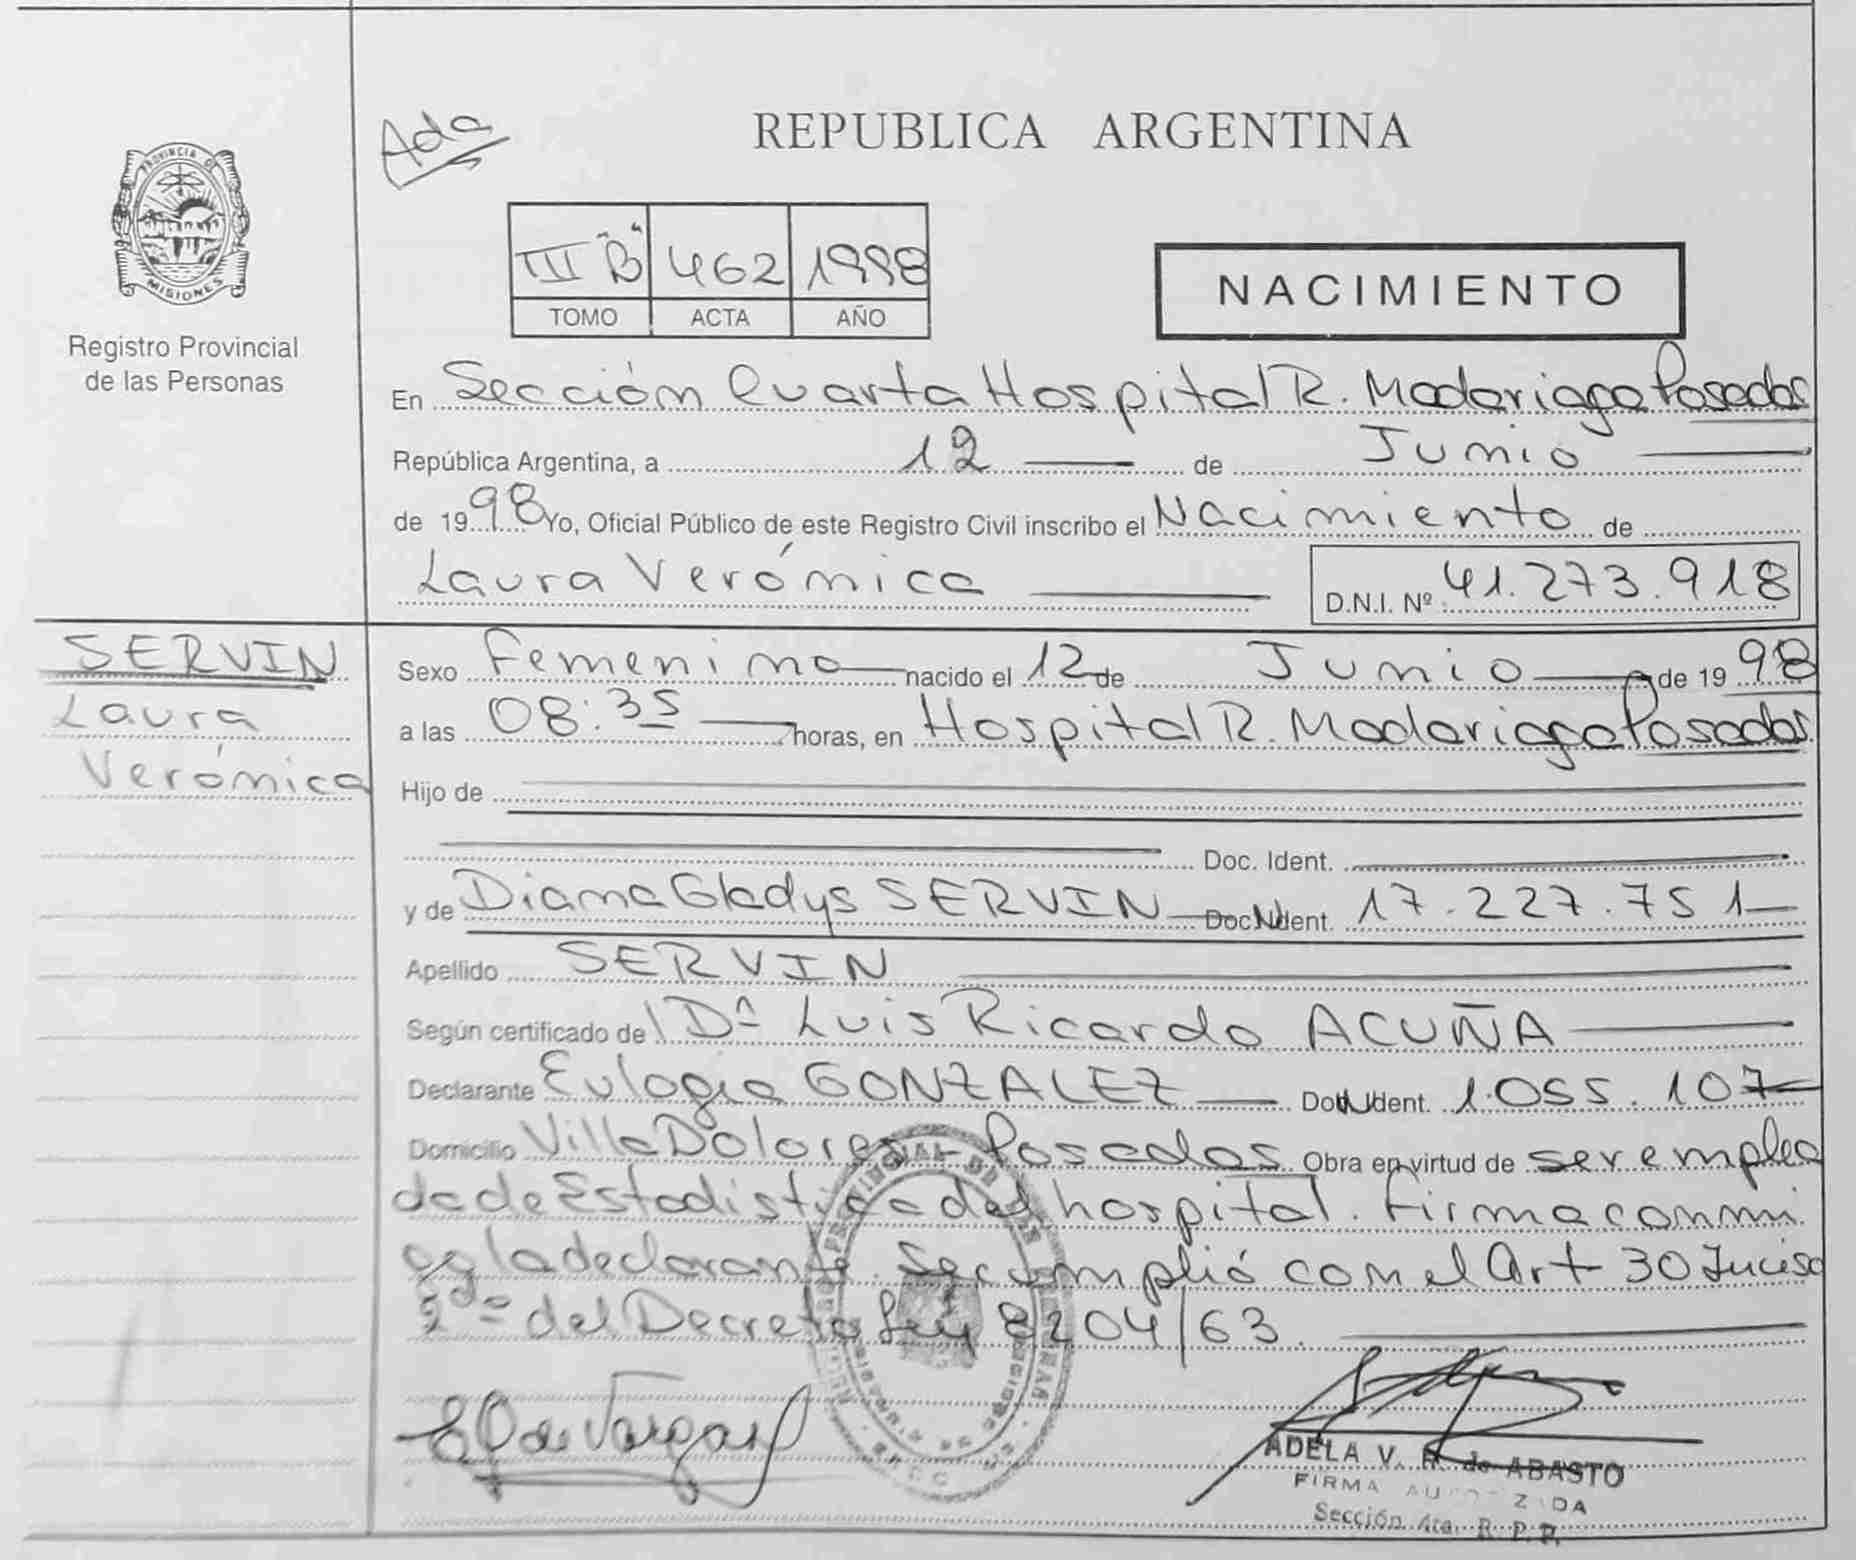 Ada
REPUBLICA ARGENTINA
PROVINCIA DE
MISIONES
Registro Provincial
de las Personas
III "B" 462 1998
TOMO ACTA AÑO
NACIMIENTO
En Sección Cuarta Hospital R. Madariaga Posadas
República Argentina, a 12 de Junio
de 1998 Yo, Oficial Público de este Registro Civil inscribo el Nacimiento de
Laura Verónica D.N.I. Nº 41.273.918
SERVIN
Laura
Verónica
Sexo Femenino nacido el 12 de Junio de 1998
a las 08:35 horas, en Hospital R. Madariaga Posadas
Hijo de
Doc. Ident.
y de Diana Gladys SERVIN Doc. Ident. 17.227.751
Apellido SERVIN
Según certificado de Luis Ricardo ACUÑA
Declarante Eulogia GONZALEZ Doc. Ident. 1.055.107
Domicilio Villa Dolores - Posadas Obra en virtud de ser emplea
da de Estadistica del hospital. Firma conmi
go la declarante. Se cumplió con el Art 30 Inciso
2do del Decreto Ley 8204/63.
ADELA V. de ABASTO
FIRMA AUTORIZADA
Sección 4ta. R. P. P.